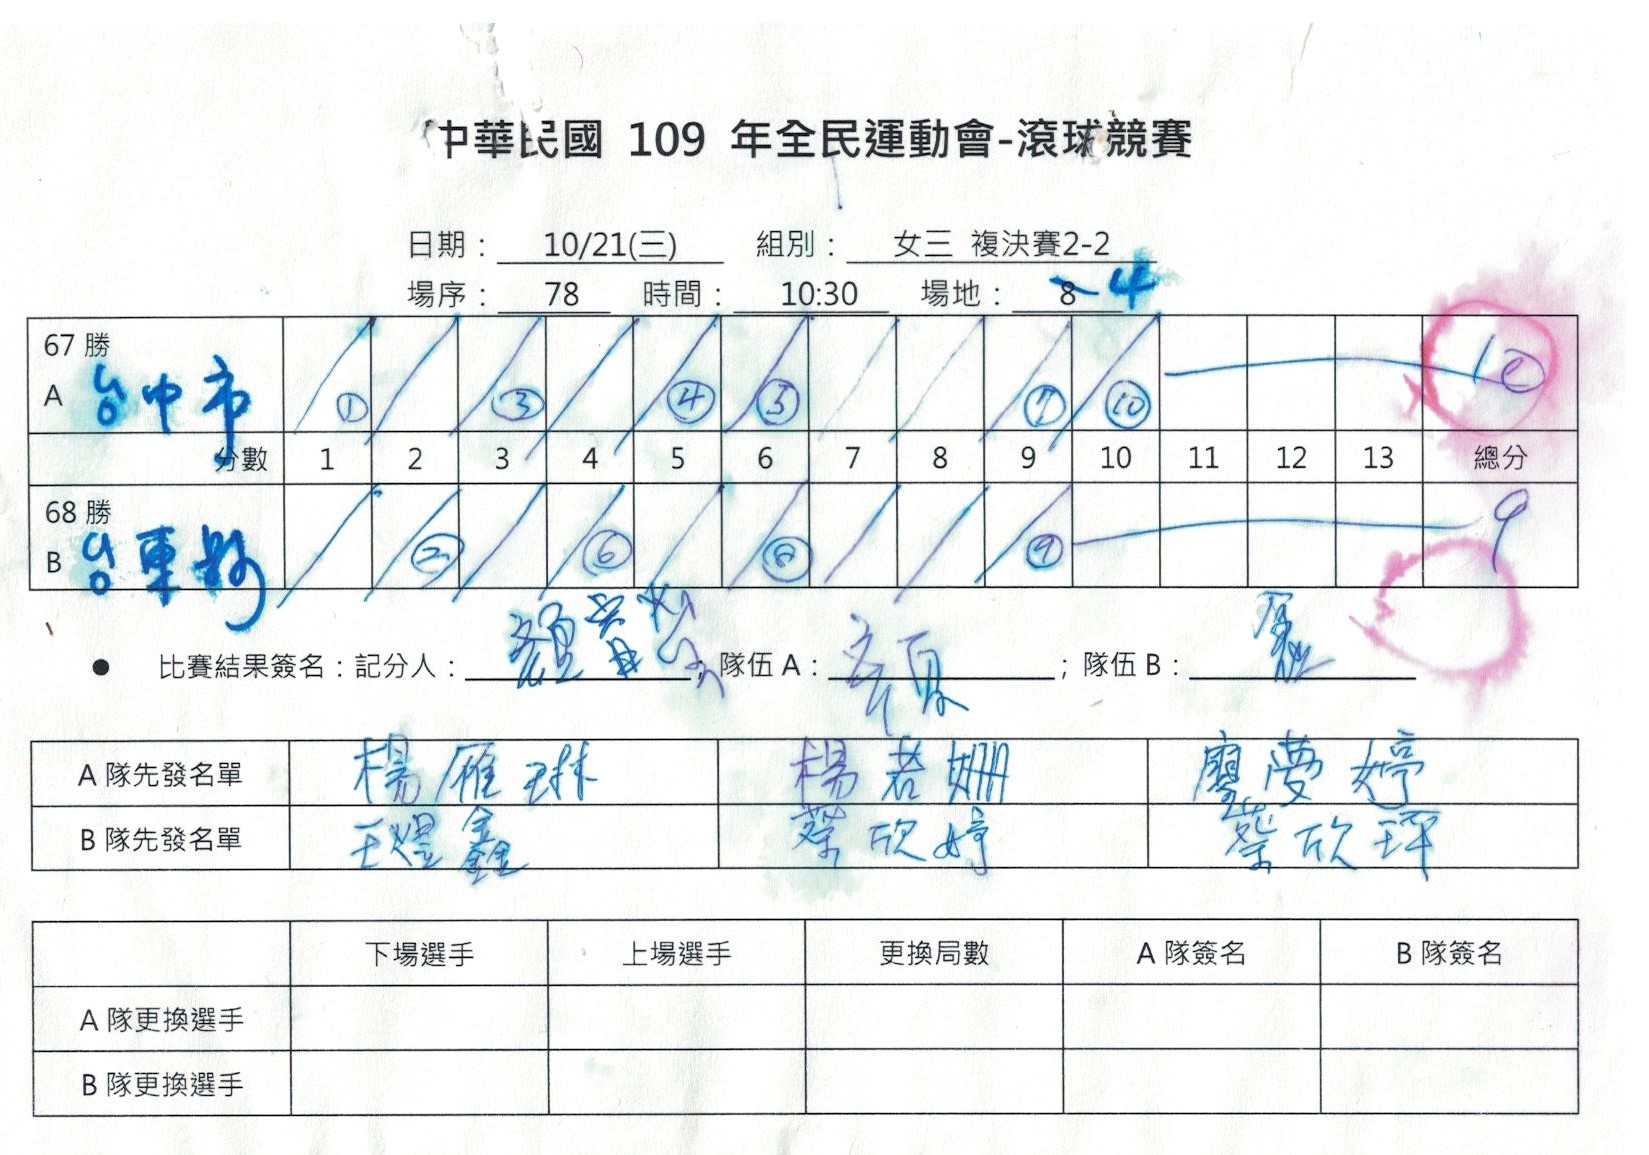 中華民國 109 年全民運動會-滾球競賽
日期： 10/21(三) 組別： 女三 複決賽2-2
場序： 78 時間： 10:30 場地： 8 4
67 勝
A 台中市 ① ③ ④ ⑤ ⑦ ⑩ 10
分數 1 2 3 4 5 6 7 8 9 10 11 12 13 總分
68 勝
B 台東縣 ② ⑥ ⑧ ⑨ 9
● 比賽結果簽名：記分人： ；隊伍 A： ；隊伍 B：
A 隊先發名單 楊雁琳 楊若姍 廖夢婷
B 隊先發名單 王 鑫 蔡欣婷 蔡欣
下場選手 上場選手 更換局數 A 隊簽名 B 隊簽名
A 隊更換選手
B 隊更換選手